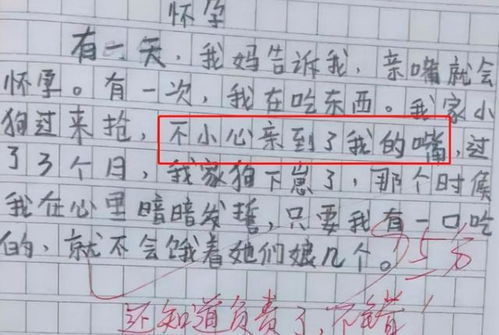 怀孕
有一天，我妈告诉我，亲嘴就会
怀孕。有一次，我在吃东西。我家小
狗过来抢，不小心亲到了我的嘴，过
了3个月，我家狗下崽了，那个时候
我在心里暗暗发誓，只要我有一口吃
的，就不会饿着她们娘几个。
还知道负责了，不错！